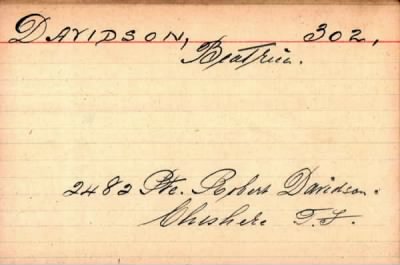 DAVIDSON, 302,
Beatrice.
2482 Pte. Robert Davidson.
Cheshire T.F.